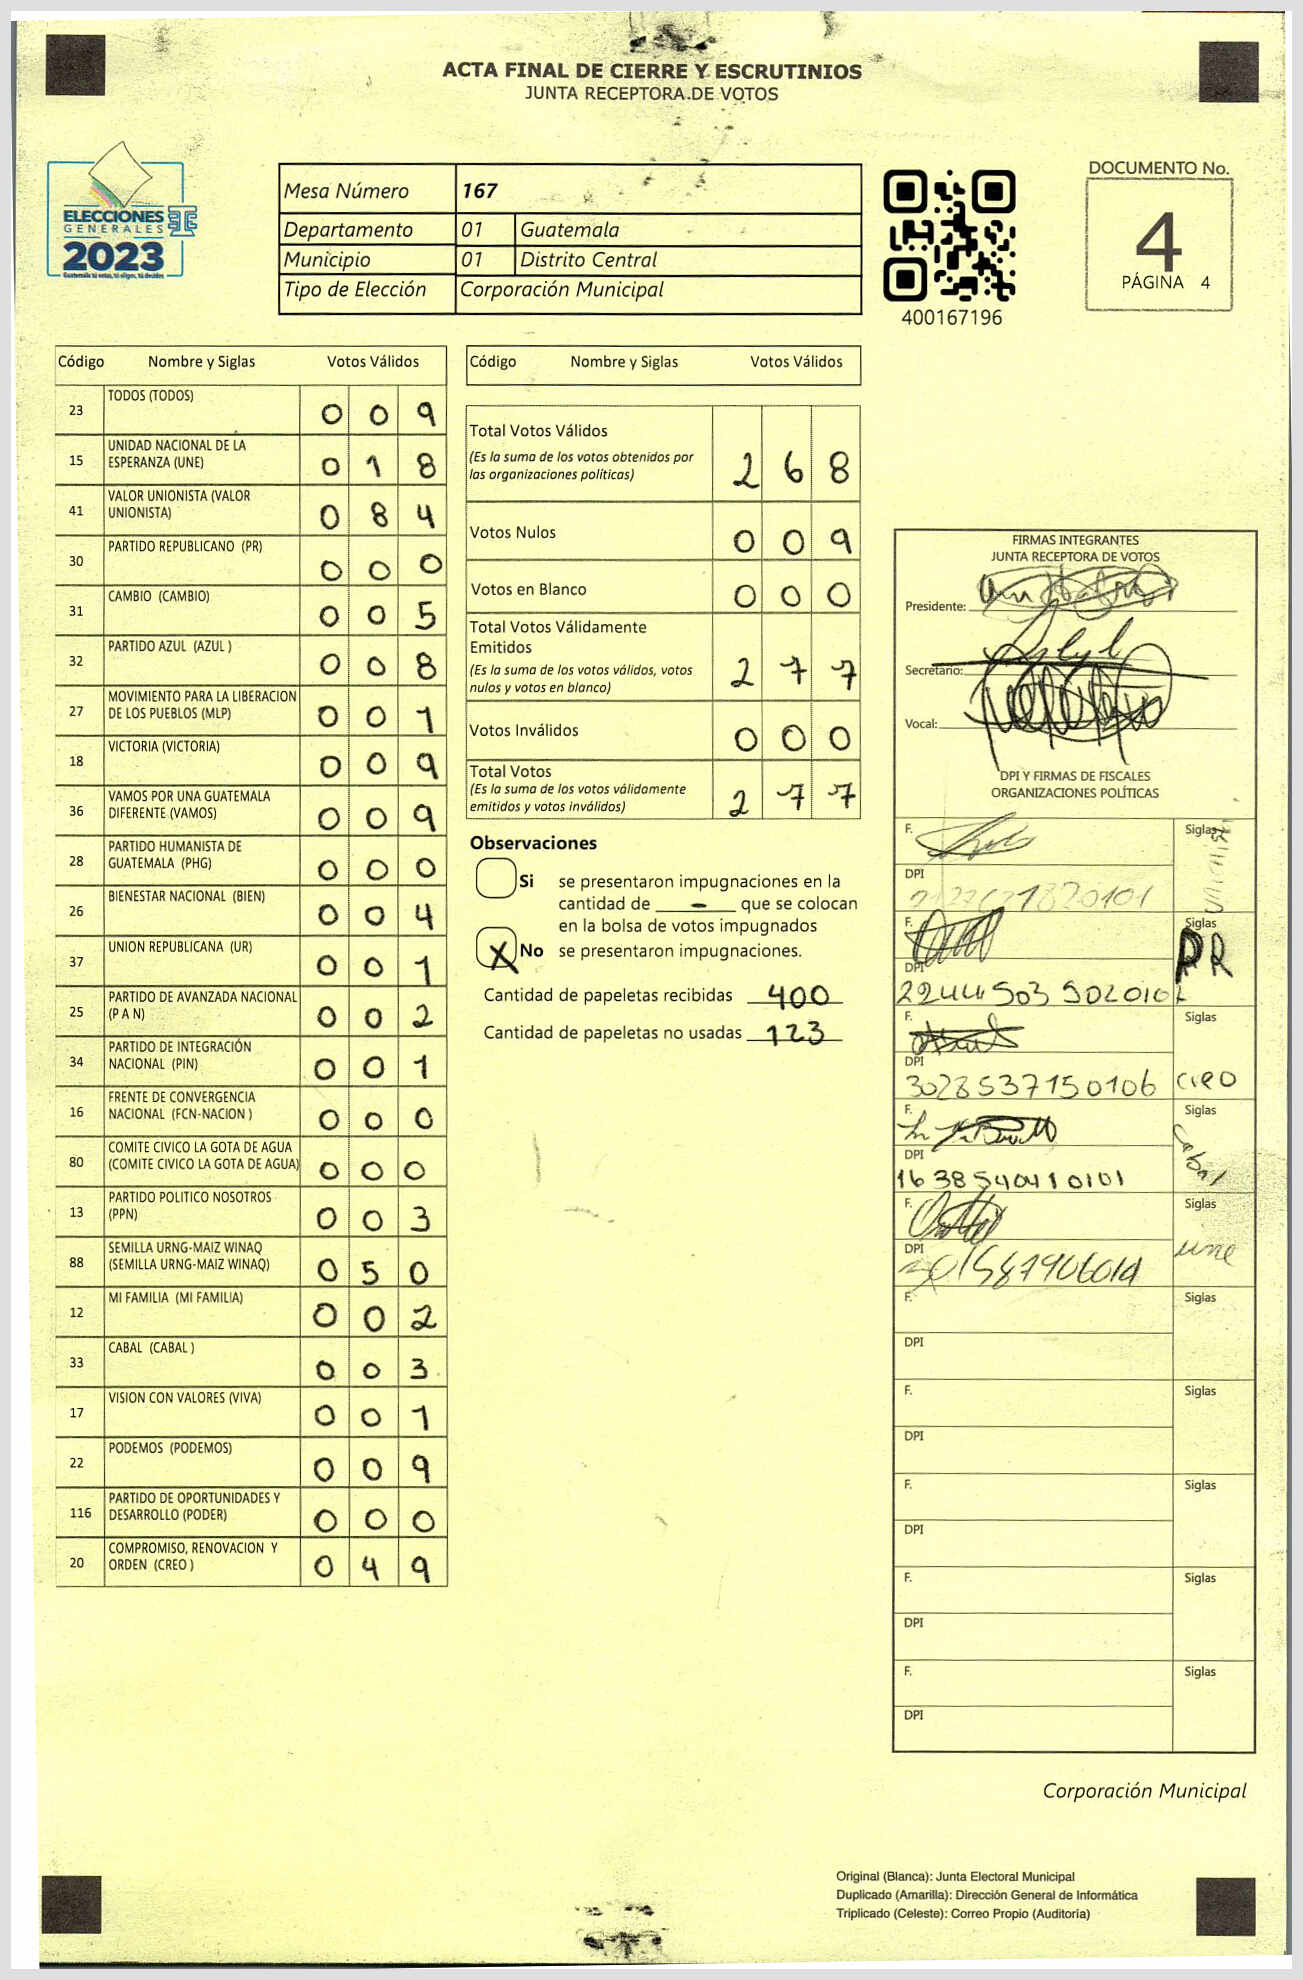 ACTA FINAL DE CIERRE Y ESCRUTINIOS
JUNTA RECEPTORA DE VOTOS
ELECCIONES
GENERALES
2023
Guatemala tú votas, tú eliges, tú decides
Mesa Número 167
Departamento 01 Guatemala
Municipio 01 Distrito Central
Tipo de Elección Corporación Municipal
400167196
DOCUMENTO No.
4
PÁGINA 4
Código Nombre y Siglas Votos Válidos
23 TODOS (TODOS) 0 0 9
15 UNIDAD NACIONAL DE LA
ESPERANZA (UNE) 0 1 8
41 VALOR UNIONISTA (VALOR
UNIONISTA) 0 8 4
30 PARTIDO REPUBLICANO (PR) 0 0 0
31 CAMBIO (CAMBIO) 0 0 5
32 PARTIDO AZUL (AZUL ) 0 0 8
27 MOVIMIENTO PARA LA LIBERACION
DE LOS PUEBLOS (MLP) 0 0 1
18 VICTORIA (VICTORIA) 0 0 9
36 VAMOS POR UNA GUATEMALA
DIFERENTE (VAMOS) 0 0 9
28 PARTIDO HUMANISTA DE
GUATEMALA (PHG) 0 0 0
26 BIENESTAR NACIONAL (BIEN) 0 0 4
37 UNION REPUBLICANA (UR) 0 0 1
25 PARTIDO DE AVANZADA NACIONAL
(P A N) 0 0 2
34 PARTIDO DE INTEGRACIÓN
NACIONAL (PIN) 0 0 1
16 FRENTE DE CONVERGENCIA
NACIONAL (FCN-NACION ) 0 0 0
80 COMITE CIVICO LA GOTA DE AGUA
(COMITE CIVICO LA GOTA DE AGUA) 0 0 0
13 PARTIDO POLITICO NOSOTROS
(PPN) 0 0 3
88 SEMILLA URNG-MAIZ WINAQ
(SEMILLA URNG-MAIZ WINAQ) 0 5 0
12 MI FAMILIA (MI FAMILIA) 0 0 2
33 CABAL (CABAL ) 0 0 3
17 VISION CON VALORES (VIVA) 0 0 1
22 PODEMOS (PODEMOS) 0 0 9
116 PARTIDO DE OPORTUNIDADES Y
DESARROLLO (PODER) 0 0 0
20 COMPROMISO, RENOVACION Y
ORDEN (CREO ) 0 4 9
Código Nombre y Siglas Votos Válidos
Total Votos Válidos
(Es la suma de los votos obtenidos por
las organizaciones políticas) 2 6 8
Votos Nulos 0 0 9
Votos en Blanco 0 0 0
Total Votos Válidamente
Emitidos
(Es la suma de los votos válidos, votos
nulos y votos en blanco) 2 7 7
Votos Inválidos 0 0 0
Total Votos
(Es la suma de los votos válidamente
emitidos y votos inválidos) 2 7 7
Observaciones
Si se presentaron impugnaciones en la
cantidad de - que se colocan
en la bolsa de votos impugnados
X No se presentaron impugnaciones.
Cantidad de papeletas recibidas 400
Cantidad de papeletas no usadas 123
FIRMAS INTEGRANTES
JUNTA RECEPTORA DE VOTOS
Presidente:
Secretario:
Vocal:
DPI Y FIRMAS DE FISCALES
ORGANIZACIONES POLÍTICAS
F. Siglas
DPI
F. Siglas
PR
DPI
F. Siglas
DPI
3028537150106 creo
F. Siglas
cabal
DPI
1638540410101
F. Siglas
une
DPI
F. Siglas
DPI
F. Siglas
DPI
F. Siglas
DPI
F. Siglas
DPI
F. Siglas
DPI
Corporación Municipal
Original (Blanca): Junta Electoral Municipal
Duplicado (Amarilla): Dirección General de Informática
Triplicado (Celeste): Correo Propio (Auditoría)